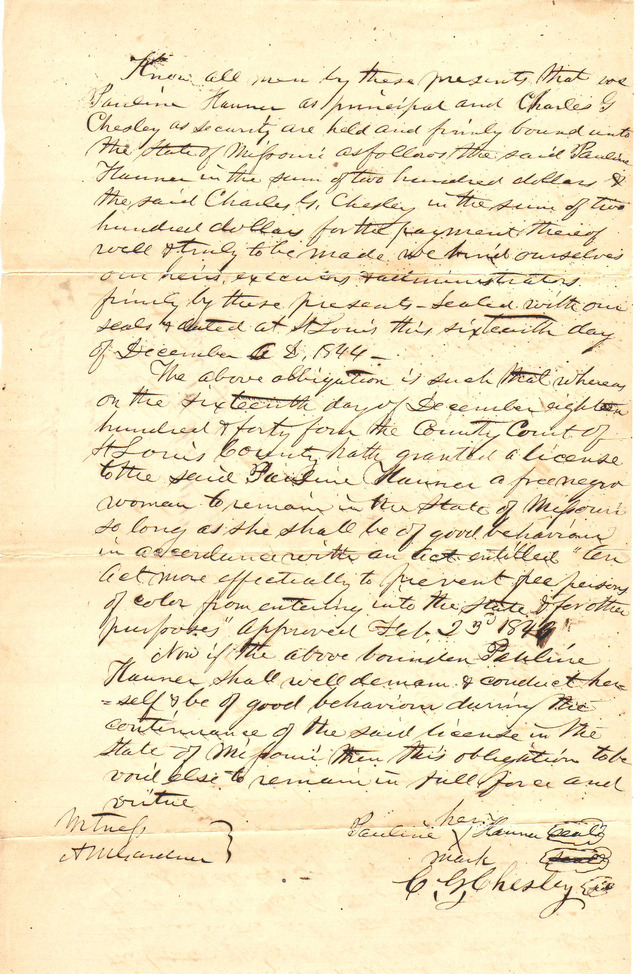 Know all men by these presents that we
Pauline Hanner as principal and Charles G
Chesley as security are held and firmly bound unto
the State of Missouri as follows, the said Pauline
Hanner in the sum of two hundred dollars &
the said Charles G. Chesley in the sum of two
hundred dollars for the payment thereof
well & truly to be made we bind ourselves
our heirs, executors & administrators
firmly by these presents - Sealed with our
seals & dated at St Louis this sixteenth day
of December A D, 1844 -
The above obligation is such that whereas
on the sixteenth day of December eighteen
hundred & forty four the County Court of
St Louis County hath granted a license
to the said Pauline Hanner a free negro
woman to remain in the State of Missouri
so long as she shall be of good behaviour
in accordance with an act entitled "An
Act more effectually to prevent free persons
of color from entering into the State & for other
purposes" approved Feb. 23d 1843"
Now if the above bounden Pauline
Hanner shall well demean & conduct her-
=self & be of good behaviour during the
continuance of the said license in the
State of Missouri then this obligation to be
void else to remain in full force and
virtue
Witness
A M Gardner
her
Pauline X Hanner seal
mark
C. G. Chesley